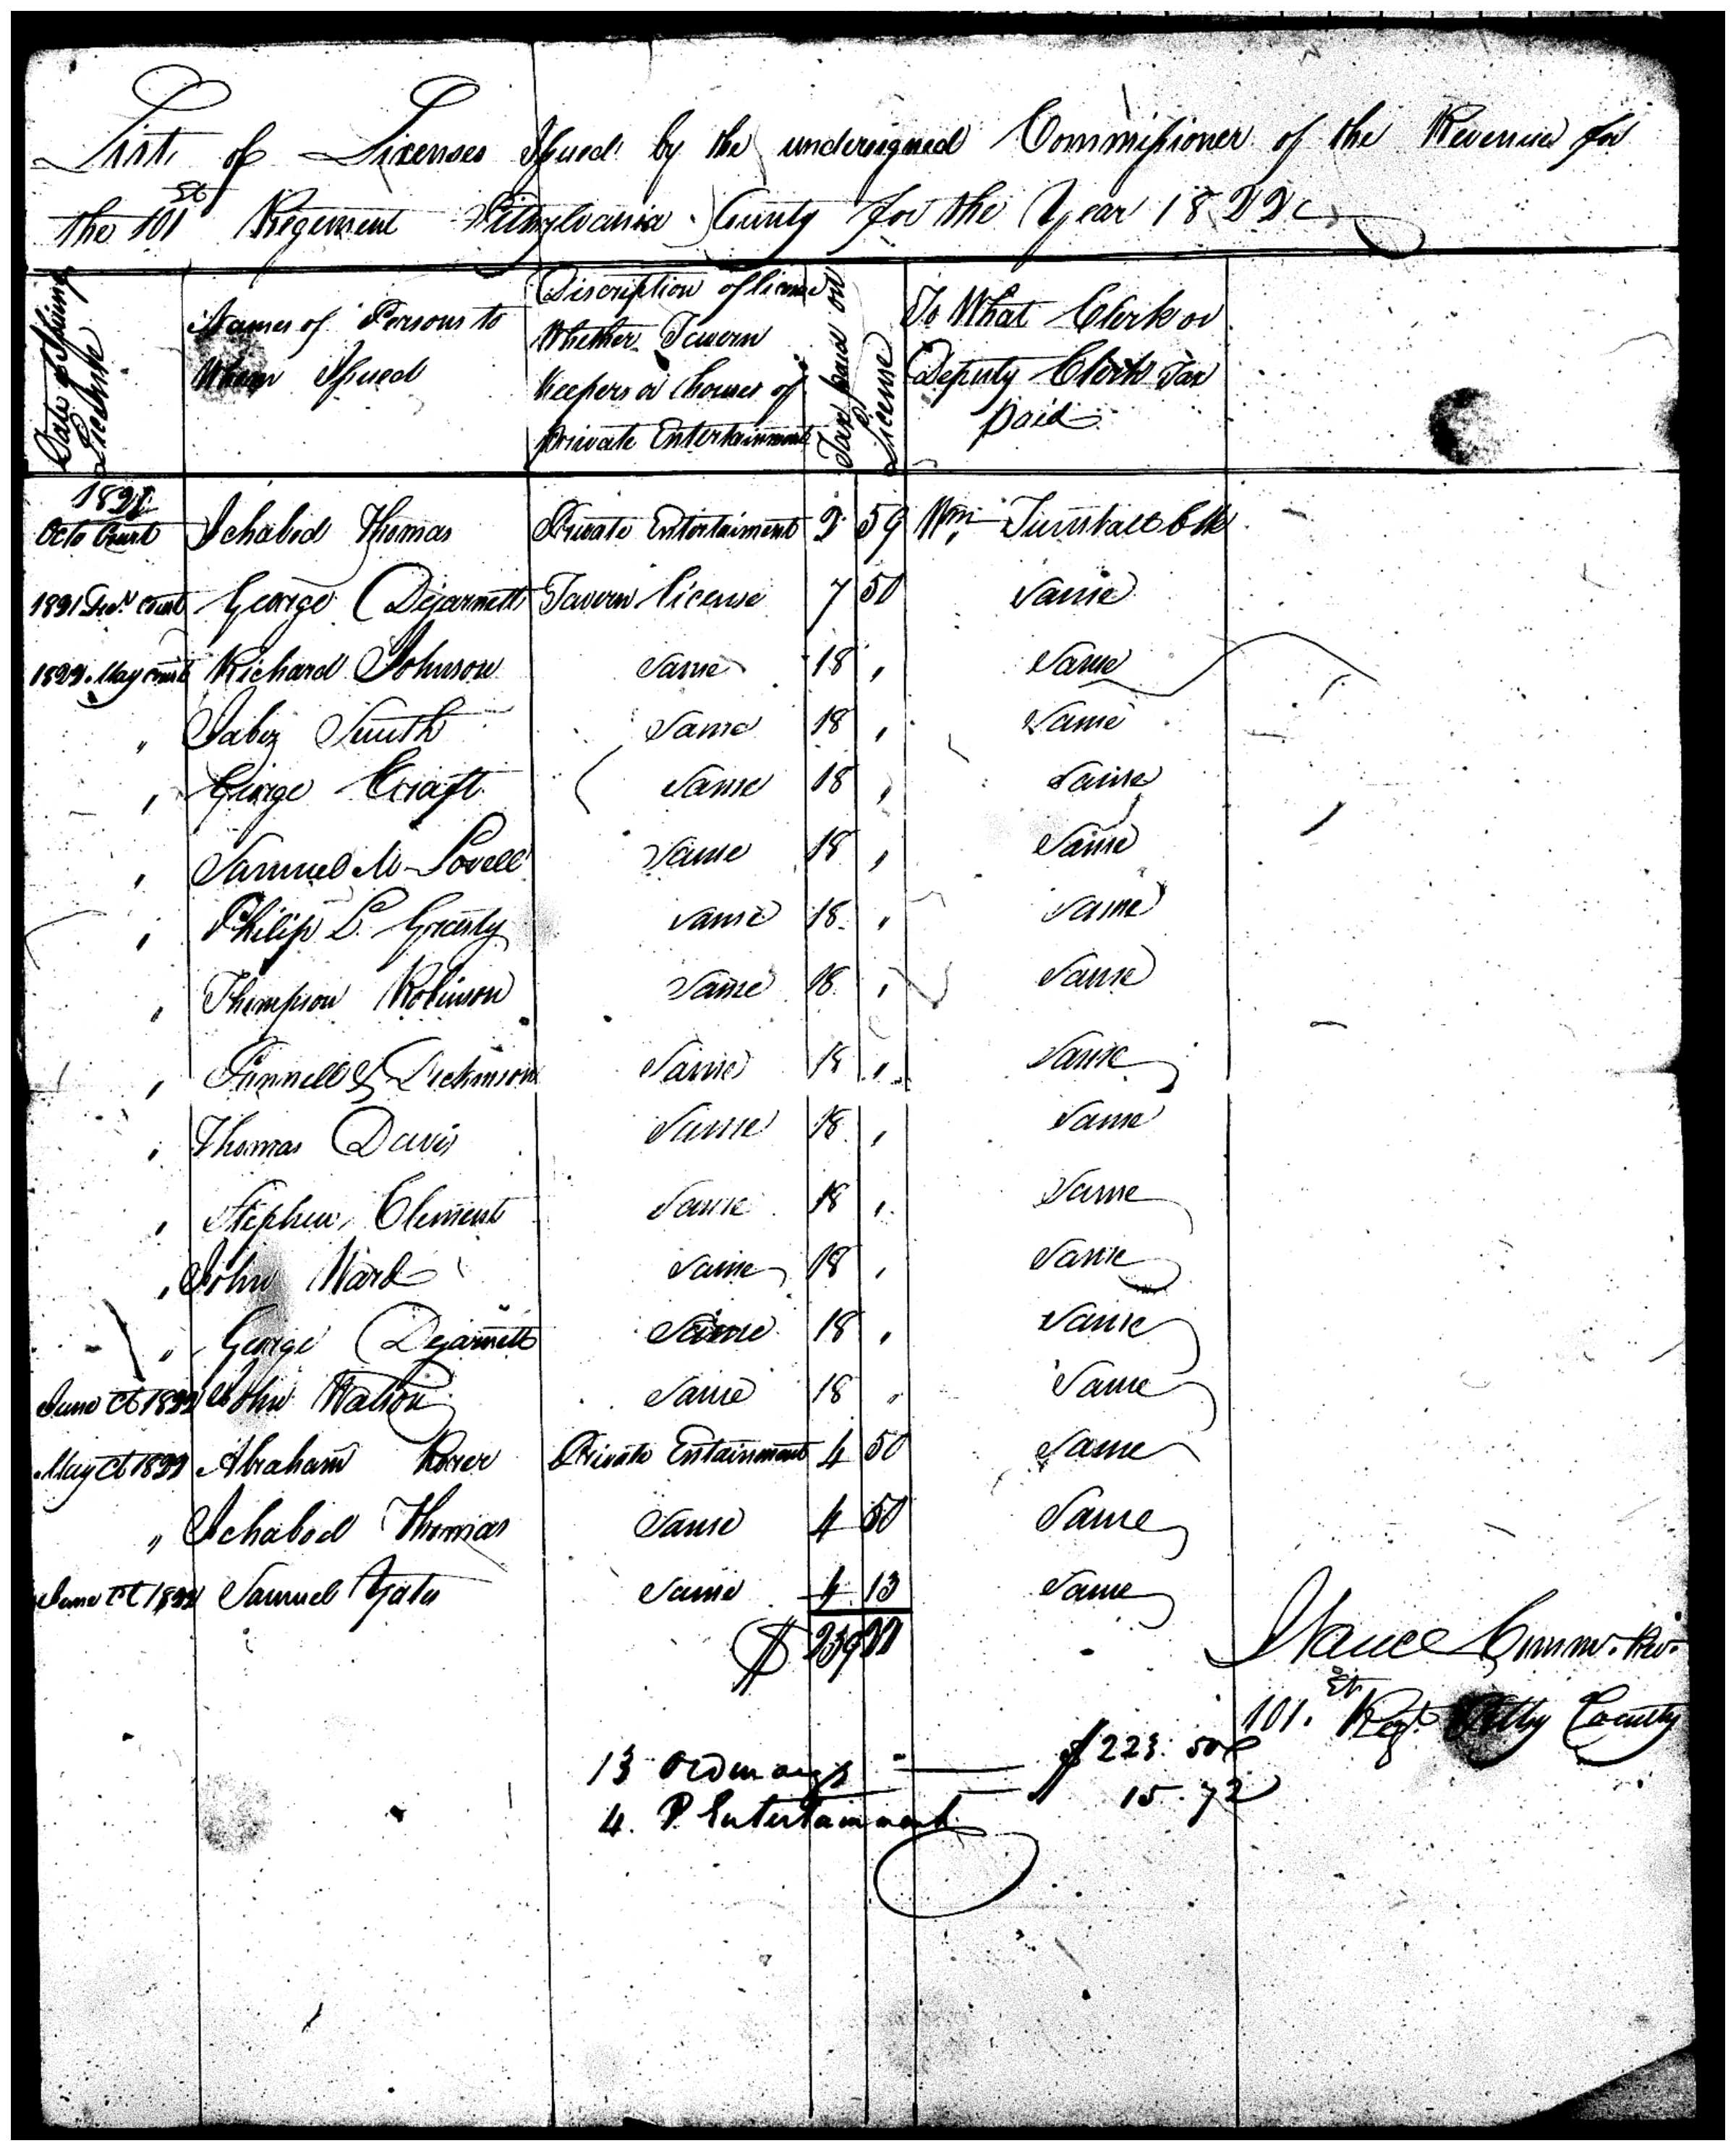 List of Lisenses Issued by the undersigned Commissioner of the Revenue for
the 101st Regement Pittsylvania County for the Year 1822
Date of Issuing Licenses
Names of Persons to
Whom Issued
Discription of license
Whether Tavern
Keepers or houses of
private Entertainment
Tax paid on
License
To What Clerk or
Deputy Clerk Tax
paid
1821
Octo Court Ichabod Thomas Private Entertaiment 2 59 Wm Tunstall Clk
1821 Court George Dejarnett Tavern License 7 50 Same
1822 May Court Richard Johnson Same 18 " Same
" Jabez Smith Same 18 " Same
" George Craft Same 18 " Same
" Samuel M Lovell Same 18 " Same
" Philip L Grasty Same 18 " Same
" Thompson Robinson Same 18 " Same
" Pannell & Dickinson Same 18 " Same
" Thomas Davis Same 18 " Same
" Stephen Clement Same 18 " Same
" John Ward Same 18 " Same
" George Dejarnett Same 18 " Same
June Ct 1822 John Watson Same 18 " Same
May Ct 1822 Abraham Rorer Private Entainment 4 50 Same
" Ichabod Thomas Same 4 50 Same
June Ct 1822 Samuel Yates Same 4 13 Same
$ 239 22
Nance Commr. Rev.
101.st Regt. Pitty County
13 Ordinarys $223.50
4. P. Entertainment 15.72